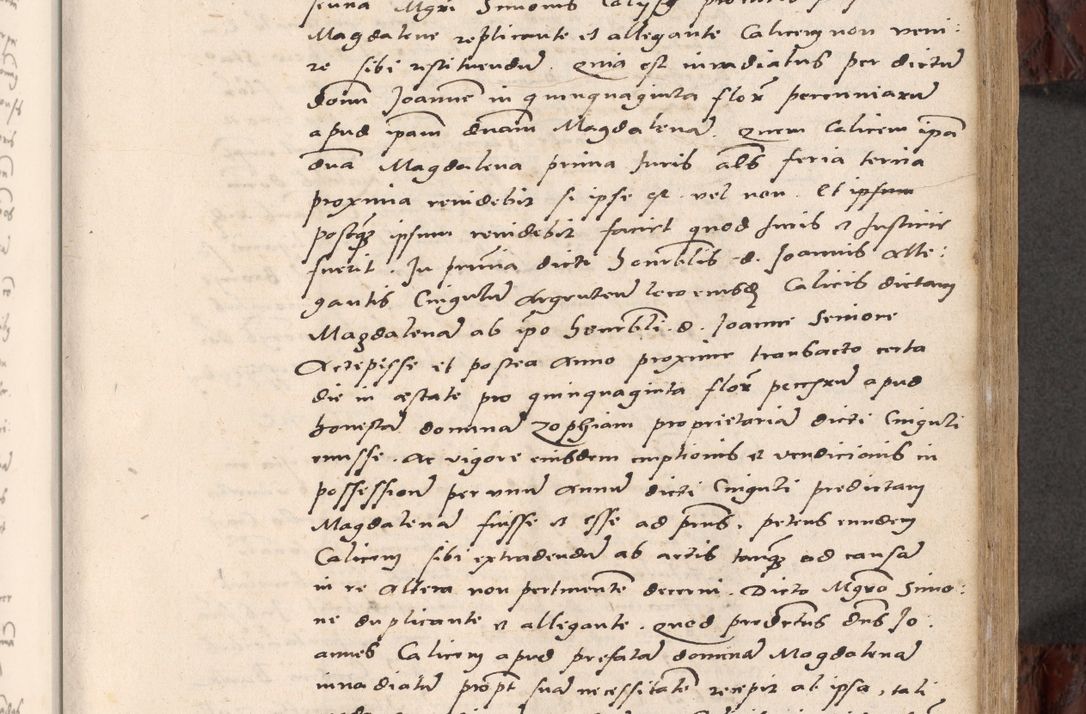 Magdalene replicante et allegante Calicem non veni:
re sibi restituendũ. Quia est invadiatus per dictũ
domĩ Joannẽ in quinquaginta floř pecuniarũ
apud ipam dnam Magdalenã. Quem Calicem ipa
dna Magdalena prima Juris als feria tertia
proxima reuidebit si ipse est vel non. Et ipsum
postq̃ ipsum reuidebit faciet quod Juris et Justicie
fuerit. In prñia dicti honorblis d. Joannis alle:
gantis Cingulũ Argenteũ loco eiusdẽ Calicis dictam
Magdalenã ab ipo honorbli d. Joanne Seniore
Accepisse et postea Anno proxime transacto certa
die in æstate pro quinquaginta floř peccŕũ apud
honestã dominã Zophiam proprietariã dicti Cinguli
emisse. Ac vigore eiusdem emptionis et vendicionis in
possessionẽ per unũ Annũ dicti Cinguli predictam
Magdalenã fuisse et esse ad prñs. petens eundem
Calicem sibi extradendũ ab actis tanq̃ ad causã
in re Altera non pertinentẽ decerni. Dicto Mgrõ Simo:
ne duplicante et allegante. Quod predictus dñs Jo:
annes Calicem apud prefatã dominã Magdalenã
inuadiatũ propt suã necessitatẽ recepit ab ipsa, tali